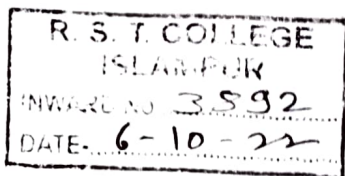 R. S. T. COLLEGE
ISLAMPUR
INWARD NO 3592
DATE- 6-10-22